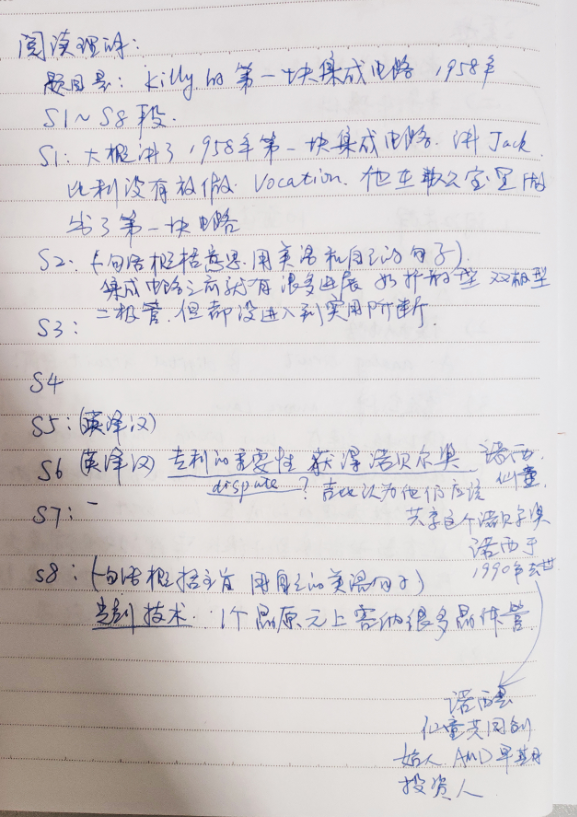 阅读理解:
题目是: Killy, 的第一块集成电路 1958年
S1~S8段.
S1: 大概讲了1958年第一块集成电路. 讲 Jack
比利没有放假 Vocation. 他在办公室里做
出了第一块电路
S2: (一句话概括意思 用英语和自己的句子).
集成电路之前就有很多进展 如扩散型 双极型
二极管. 但都没进入到实用阶断.
S3:
S4
S5: (英译汉)
S6 (英译汉) 专利的重要性 获得诺贝尔奖 诺西.
仙童.
dispute ? 吉比认为他们应该
共享这个诺贝尔奖
S7: -
诺西于
1990年去世
S8: (一句话概括主旨 用自己的英语句子)
技术. 1个晶原元上容纳很多晶体管.
诺西是
仙童共同创
始人 AMD早期
投资人